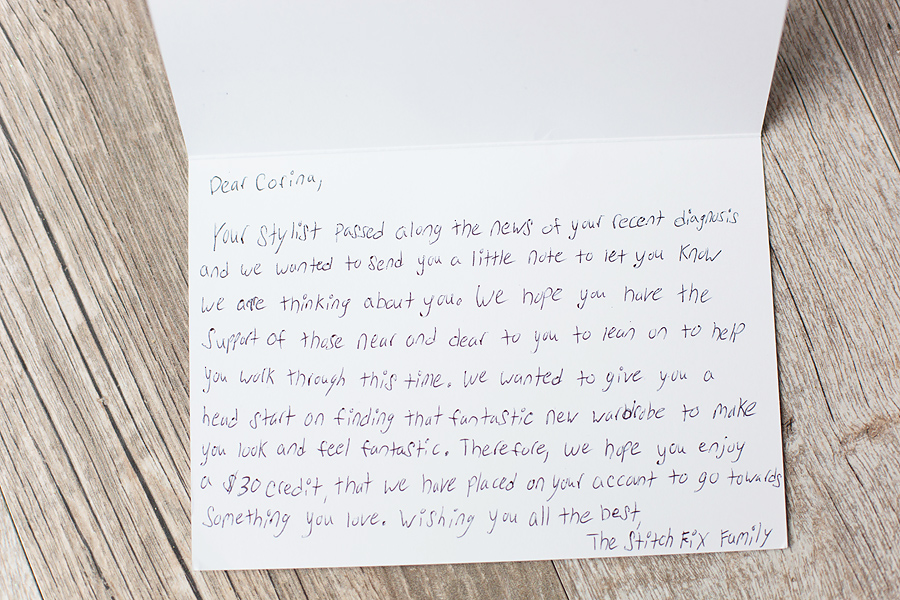 Dear Corina,
Your stylist passed along the news of your recent diagnosis
and we wanted to send you a little note to let you know
we are thinking about you. We hope you have the
support of those near and dear to you to lean on to help
you work through this time. We wanted to give you a
head start on finding that fantastic new wardrobe to make
you look and feel fantastic. Therefore, we hope you enjoy
a $30 credit, that we have placed on your account to go towards
something you love. Wishing you all the best,
The Stitch Fix Family